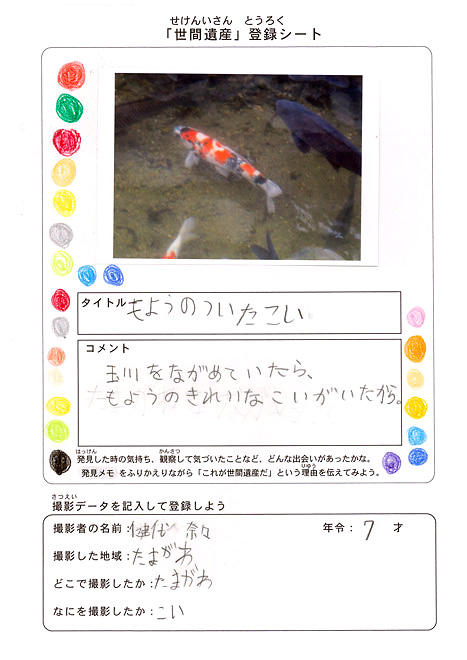 せけんいさん とうろく
「世間遺産」登録シート
タイトル もようのついたこい
コメント
玉川をながめていたら、
もようのきれいなこいがいたから。
はっけん かんさつ
発見した時の気持ち、観察して気づいたことなど、どんな出会いがあったかな。
りゆう
発見メモ をふりかえりながら「これが世間遺産だ」という理由を伝えてみよう。
さつえい
撮影データを記入して登録しよう
撮影者の名前： 奈々 年令： 7 才
撮影した地域：たまがわ
どこで撮影したか：たまがわ
なにを撮影したか：こい